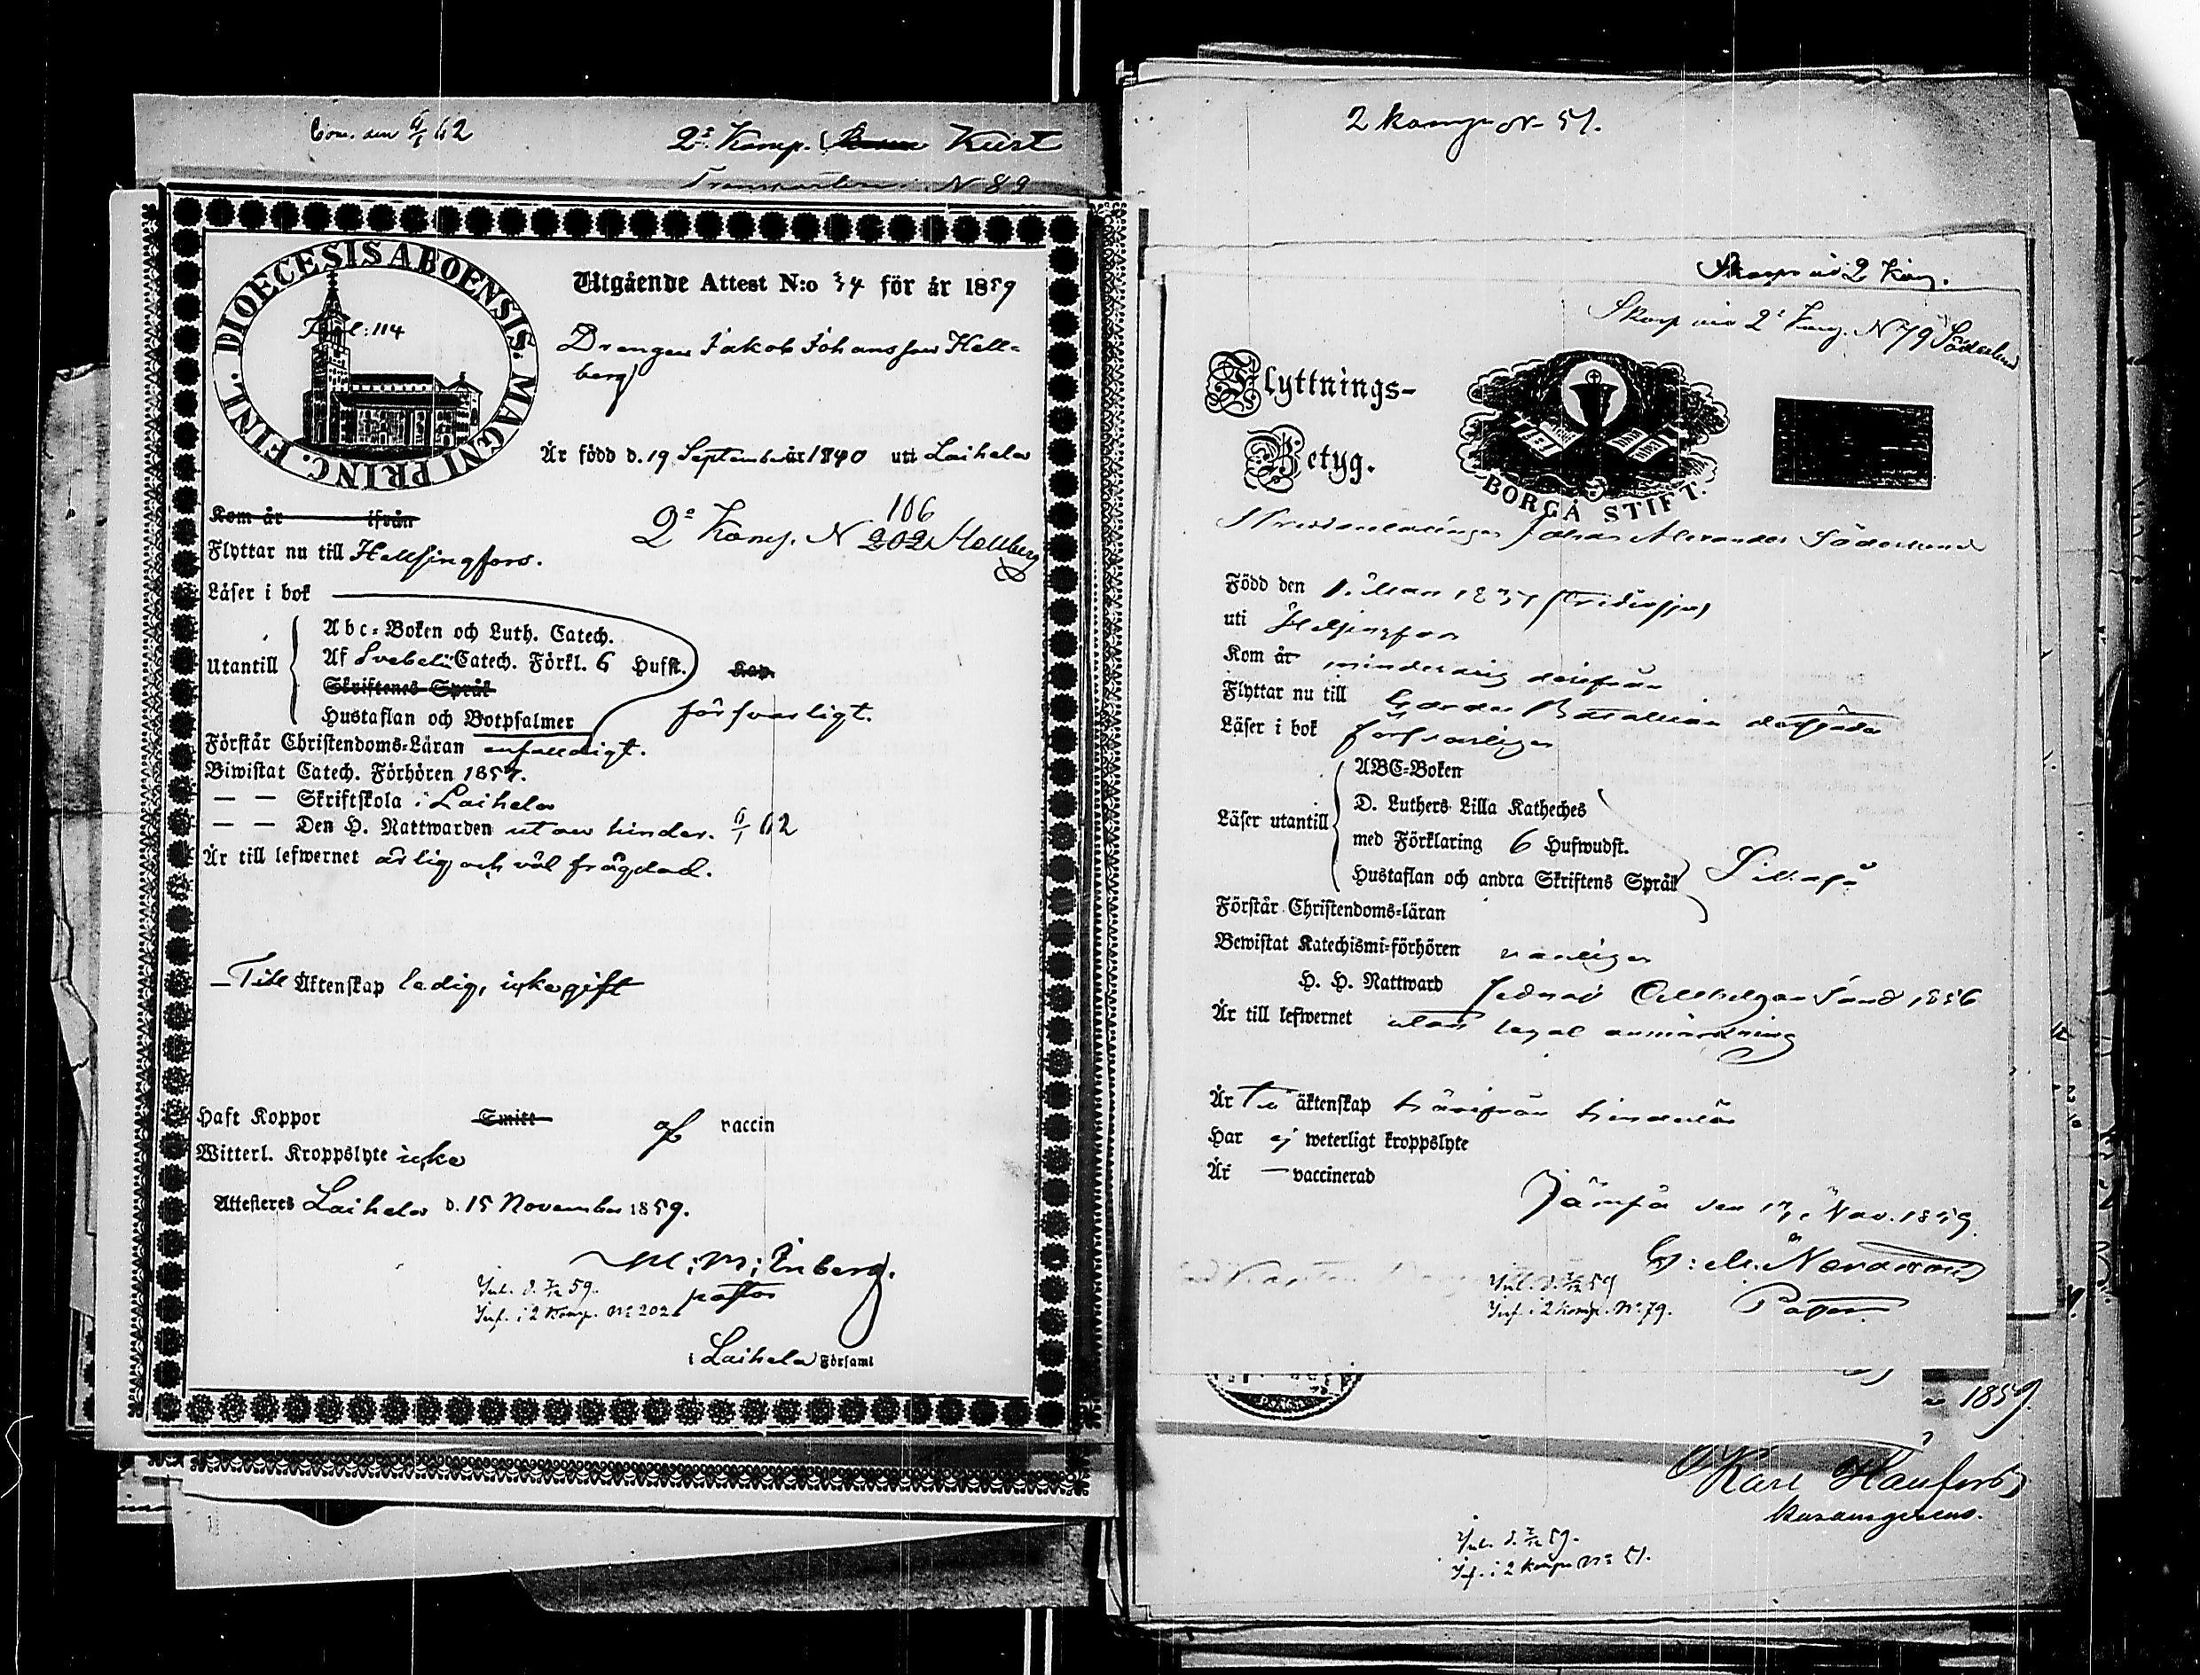 Com. den 6/1 62
2:a Komp. Kust
N 89
DIOECESIS ABOENSIS. MAGNI PRINC. FINL.
Fol: 114
Utgående Attest N:o 34 för år 1859
Drengen Jakob Johansson Hell=
berg
Är född d. 19 September år 1840 uti Laihela
Kom år ifrån
106
2:a Komp. N 202 Hellberg
Flyttar nu till Hellsingfors.
Läser i bok
Utantill
Abc=Boken och Luth. Catech.
Af Svebelii Catech. Förkl. 6 Hufst. Kap.
Skriftenes Språk
Hustaflan och Botpsalmer
försvarligt.
Förstår Christendoms=Läran enfaldigt.
Biwistat Catech. Förhören 1857.
— — Skriftskola i Laihela
— — Den H. Nattwarden utan hinder. 6/1 62
Är till lefwernet ärlig och väl frägdad.
— Till Äktenskap ledig, icke gift
Haft Koppor Smitt af vaccin
Witterl. Kroppslyte icke
Attesteres Laihela d. 15 November 1859.
M: M: Enberg.
pastor
Inl. d. 7/12 59.
Inf. i 2 Komp. No 202
i Laihela Församl
2 Komp N- 51.
Skarp vid 2 Komp.
Skarp vid 2:a Komp. N 79 Söderlund
Flyttnings-
Betyg.
BORGÅ STIFT.
Johan Alexander Söderlund
Född den
uti Helsingfors
Kom år minderårig derifrån
Flyttar nu till
Läser i bok försvarligen
Läser utantill
ABC=Boken
D. Luthers Lilla Katheches
med Förklaring 6 Hufwudst.
Hustaflan och andra Skriftens Språk
Förstår Christendoms=läran
Bewistat Katechismi=förhören vanligen
H. H. Nattward 1856
Är till lefwernet utan lagal anmärkning
Är till äktenskap härifrån hinderlös
Har ej weterligt kroppslyte
Är — vaccinerad
Jämsä den 17 Nov. 1859
Inl. d. 7/12 59
Inf. i 2 Komp. No 79.
1859.
Karl
Inl. d. 7/12 59.
Inf. i 2 Komp No 51.